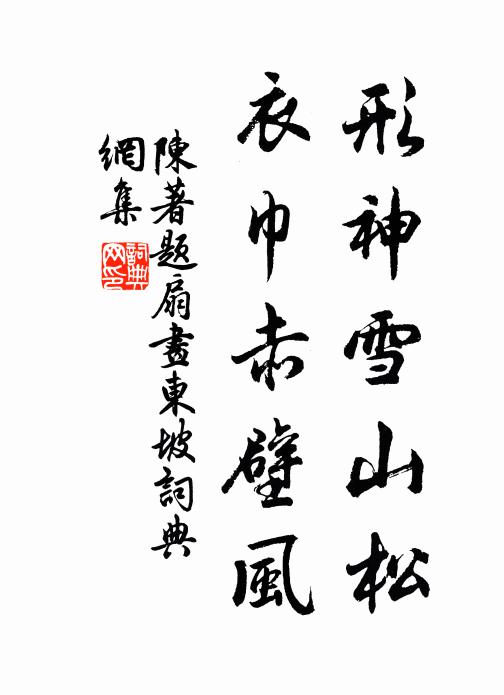 形神雪山松
衣巾赤壁風
陳著題扇畫東坡詞典
網集
詞典
网印